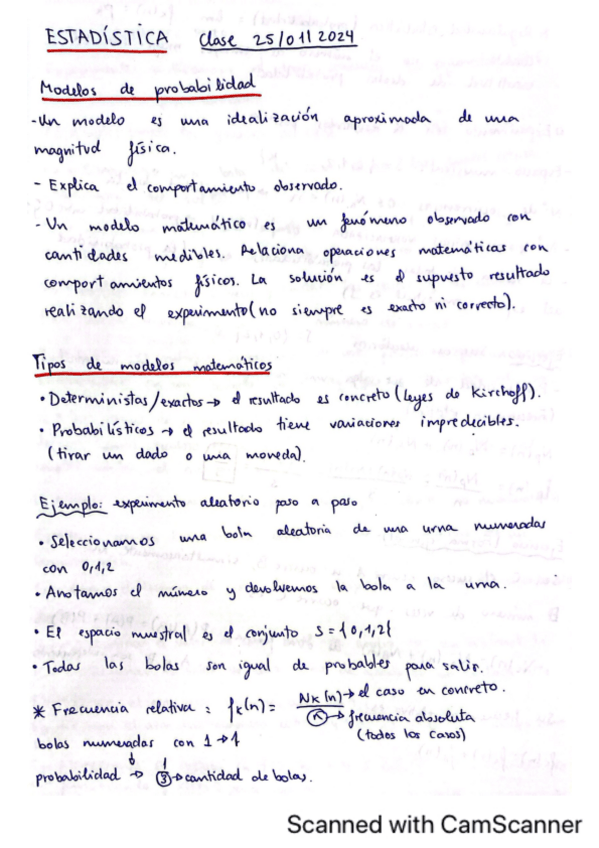 ESTADÍSTICA Clase 25/01/2024
Modelos de probabilidad
- Un modelo es una idealización aproximada de una
magnitud física.
- Explica el comportamiento observado.
- Un modelo matemático es un fenómeno observado con
cantidades medibles. Relaciona operaciones matemáticas con
comportamientos físicos. La solución es el supuesto resultado
realizando el experimento (no siempre es exacto ni correcto).
Tipos de modelos matemáticos
• Deterministas/exactos → el resultado es concreto (leyes de Kirchoff).
• Probabilísticos → el resultado tiene variaciones impredecibles.
(tirar un dado o una moneda).
Ejemplo: experimento aleatorio paso a paso
• Seleccionamos una bola aleatoria de una urna numeradas
con 0,1,2
• Anotamos el número y devolvemos la bola a la urna.
• El espacio muestral es el conjunto S = {0,1,2}
• Todas las bolas son igual de probables para salir.
* Frecuencia relativa: fk(n) = Nk(n) → el caso en concreto.
n → frecuencia absoluta
(todos los casos)
bolas numeradas con 1 → 1
probabilidad → 3 → cantidad de bolas.
Scanned with CamScanner